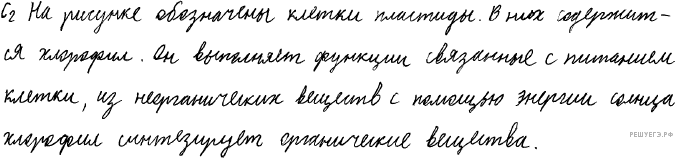 С2 На рисунке обозначены клетки пластиды. В них содержит-
ся хлорофил. Он выполняет функции связанные с питанием
клетки, из неорганических веществ с помощью энергии солнца
хлорофил синтезирует органические вещества.
РЕШУЕГЭ.РФ